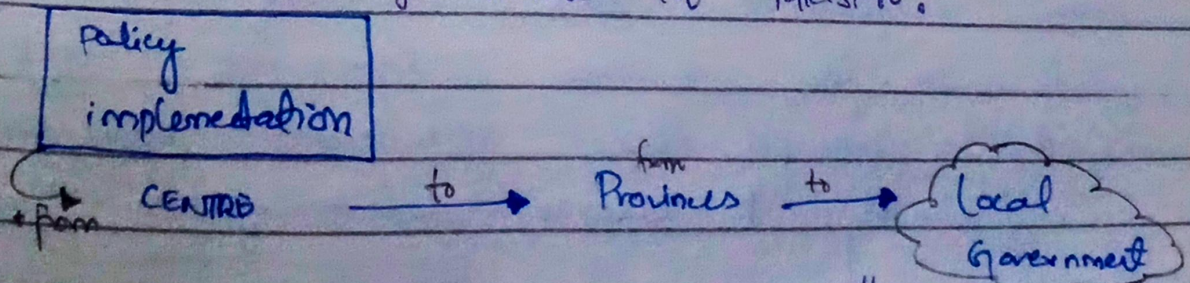 policy
implemedation
from
CENTRE to Provinces to Local
from
Government